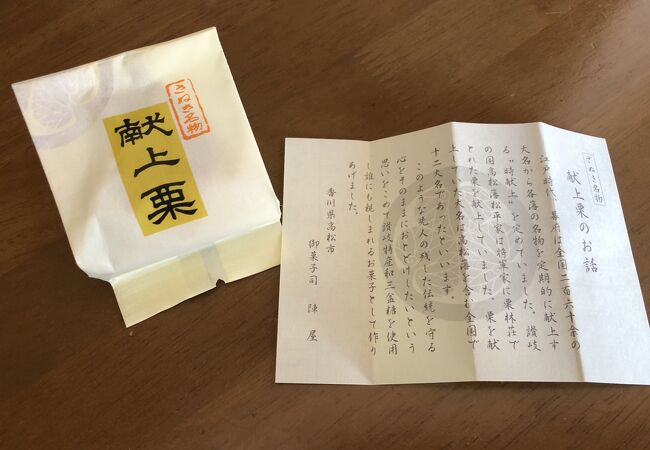 さぬき名物
献上栗
さぬき名物
献上栗のお話
江戸時代、幕府は全国二百六十余の
大名から各藩の名物を定期的に献上す
る〝時献上〟を定めていました。讃岐
の国高松藩松平家は将軍家に栗林荘で
とれた栗を献上していました。栗を献
上していた大名は高松藩を含む全国で
十二大名であったといいます。
このような先人の残した伝統を守る
心をそのままにおとどけしたいという
思いをこめて讃岐特産和三盆糖を使用
し誰にも親しまれるお菓子として作り
あげました。
香川県高松市
御菓子司 陣屋